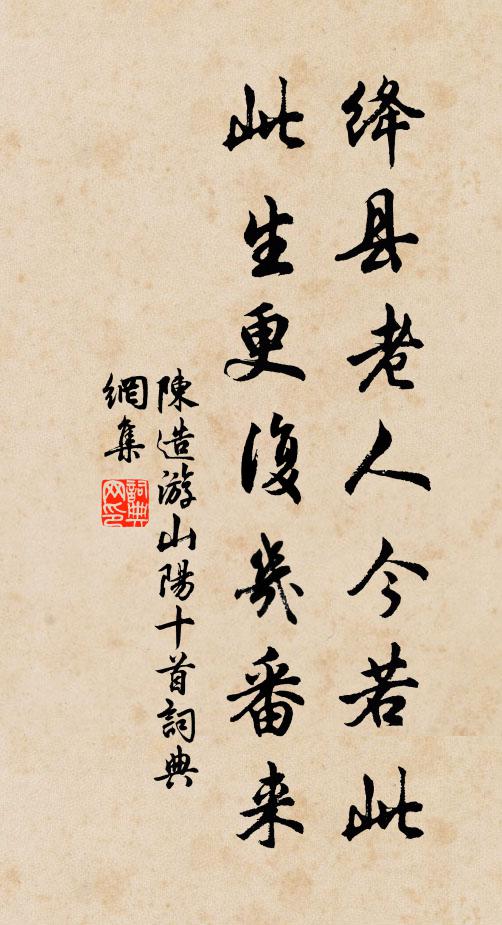 绛县老人今若此
此生更復幾番来
陳造游山陽十首詞典
網集
詞典網印